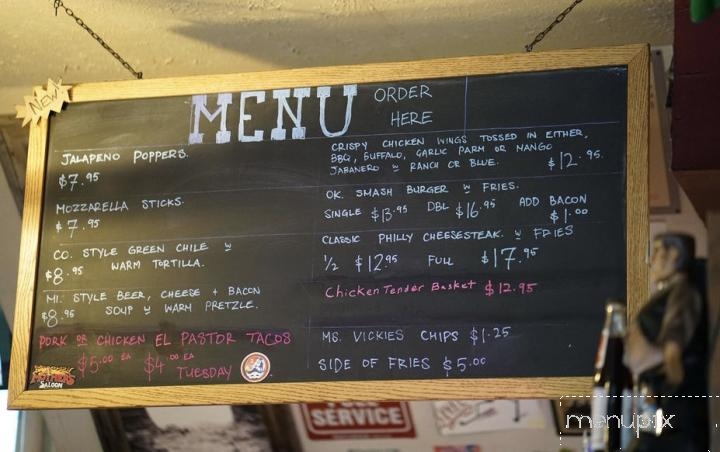 NEW!
MENU
ORDER
HERE
JALAPENO POPPERS.
$7.95
MOZZARELLA STICKS.
$7.95
CO. STYLE GREEN CHILE W
$8.95 WARM TORTILLA.
MI. STYLE BEER, CHEESE + BACON
$8.95 SOUP W WARM PRETZLE.
PORK OR CHICKEN EL PASTOR TACOS
$5.00 EA $4.00 EA TUESDAY
MOTHERS
SALOON
CRISPY CHICKEN WINGS TOSSED IN EITHER,
BBQ, BUFFALO, GARLIC PARM OR MANGO
JABANERO W RANCH OR BLUE. $12.95.
OK. SMASH BURGER W FRIES.
SINGLE $13.95 DBL $16.95 ADD BACON
$1.00
CLASSIC PHILLY CHEESESTEAK. W FRIES
1/2 $12.95 FULL $17.95
Chicken Tender Basket $12.95
MS. VICKIES CHIPS $1.25
SIDE OF FRIES $5.00
SERVICE
menupix